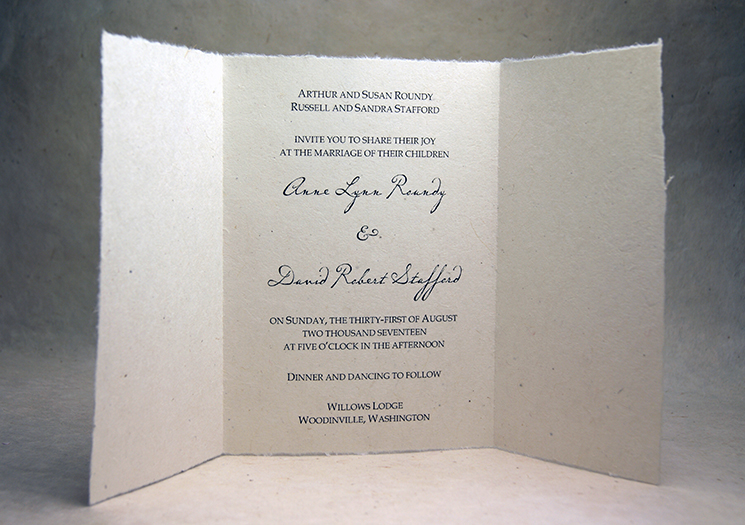 Arthur and Susan Roundy
Russell and Sandra Stafford
invite you to share their joy
at the marriage of their children
Anne Lynn Roundy
&
David Robert Stafford
on Sunday, the thirty-first of August
two thousand seventeen
at five o'clock in the afternoon
Dinner and dancing to follow
Willows Lodge
Woodinville, Washington